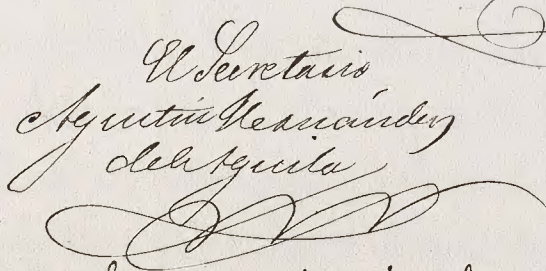 El Secretario
Agustin Hernández
del Aguila